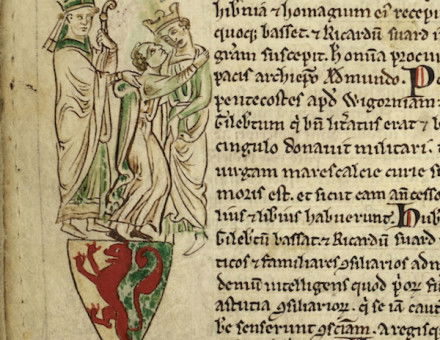 hibitiā ⁊ homagium ei' recepi
quoq; basset. ⁊ Ricardū suard i
grām suscepit. hoīnna procur
pacis archiep̄o Ædmundo. P
pentecostes apd̄ Wigorniam
Gileb̄tum q̄ bn̄ litatus erat ⁊ b
cingulo donauit militari. t
uirgam marescalcie curie su
moris est. et sicut eam ancesso
lius ⁊ libius habuerunt. hub
Gileb̄tū bassat. ⁊ Ricardū suard
ticos ⁊ familiares ꝯsiliarios adm
demū intelligens quod p'or su
astutia ꝯsiliarioꝝ. q̄ se iā caut
b̄e senserunt ꝯsciam. A regisq